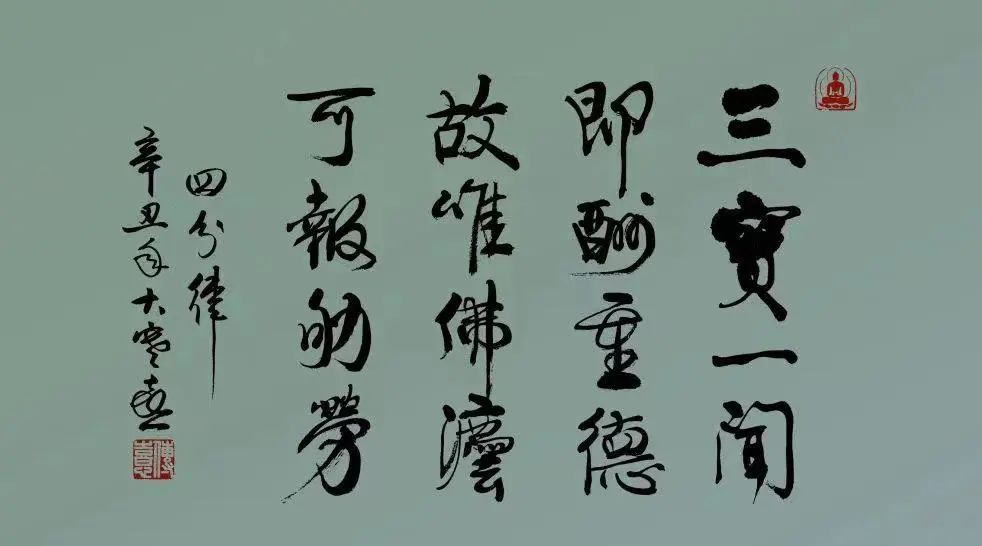 三寶一聞
即酬重德
故唯佛灋
可報劬勞
四分律
辛丑年大寒喜